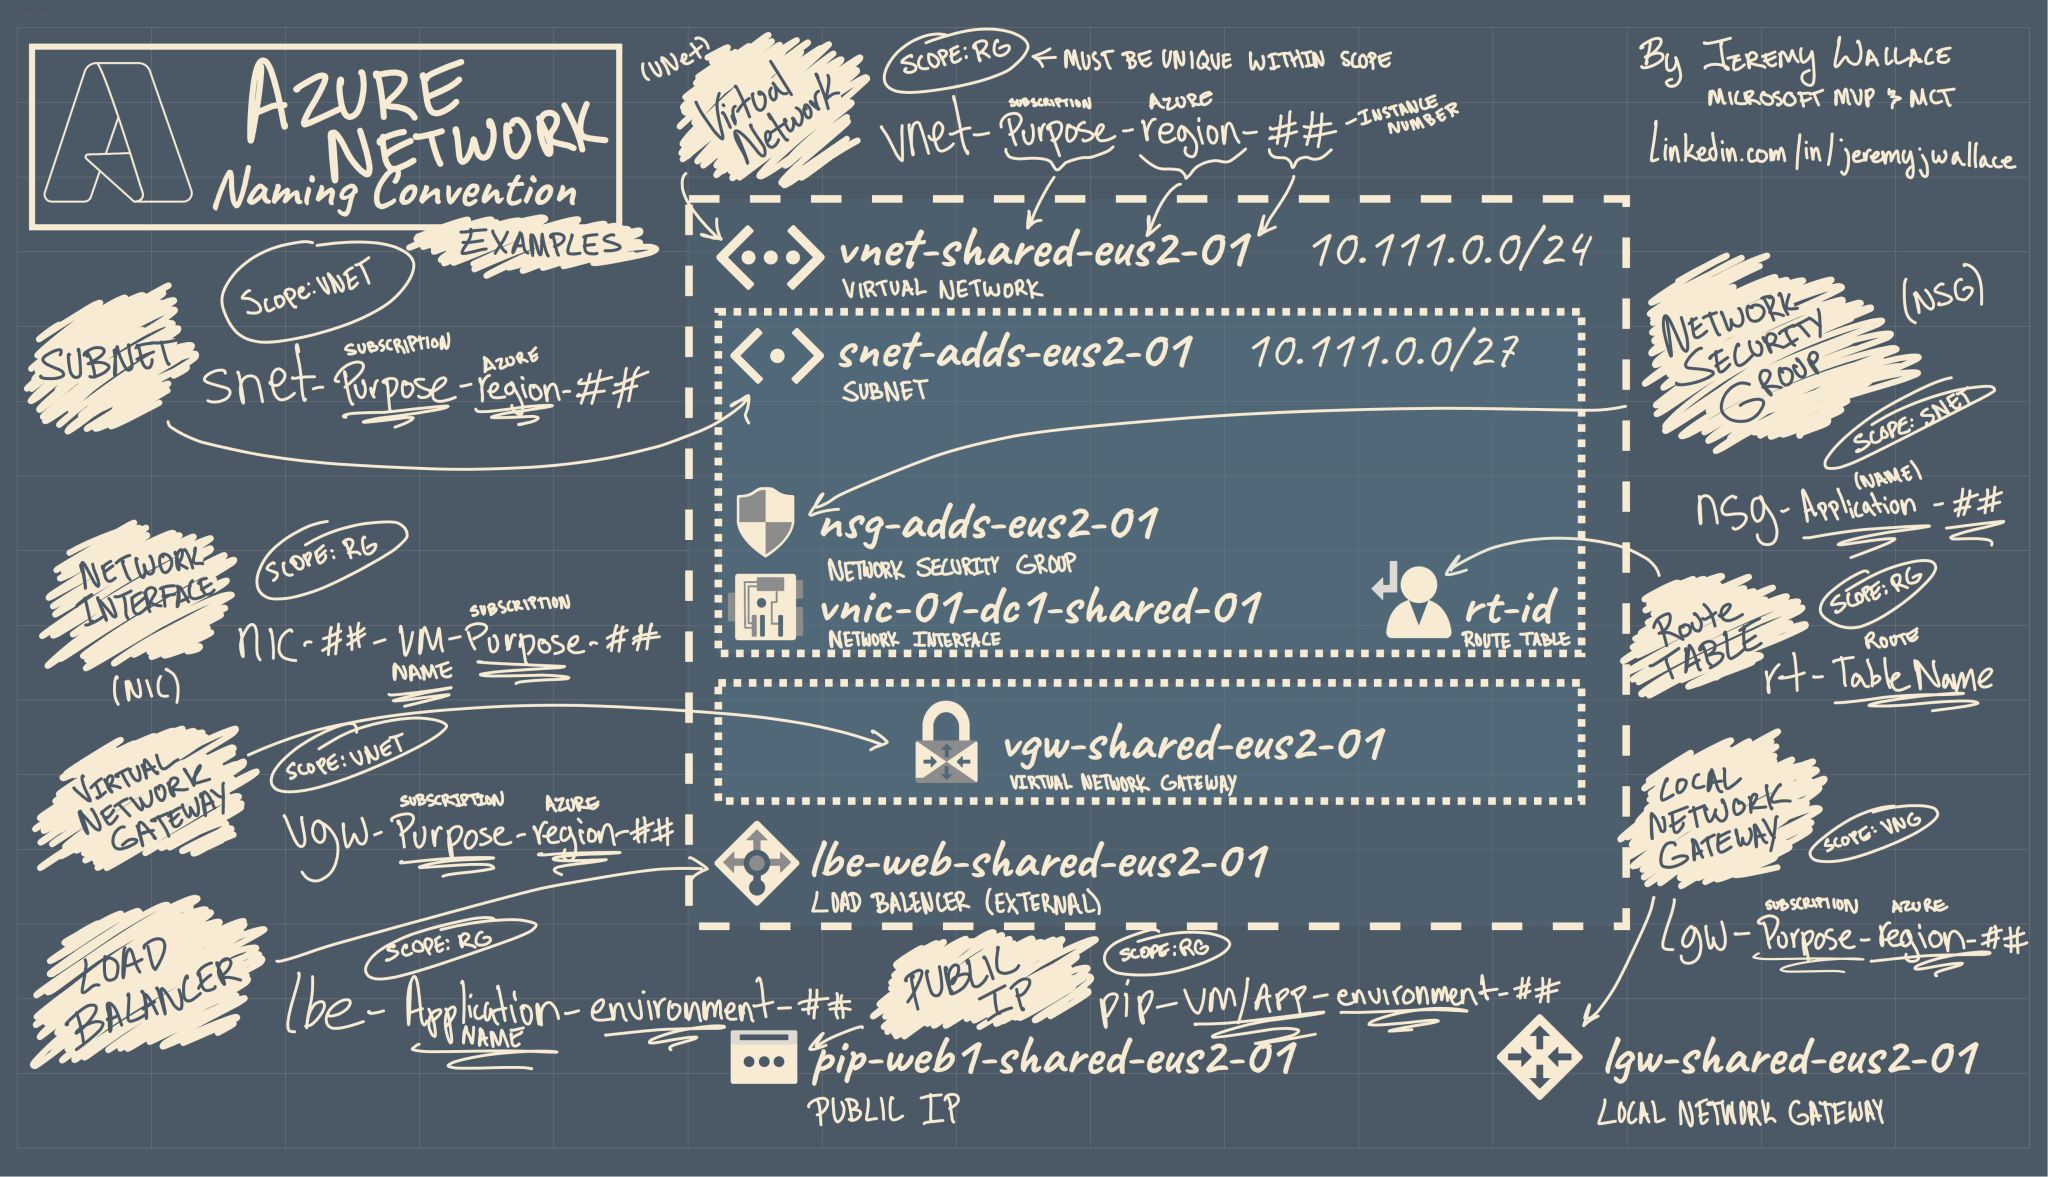 AZURE
NETWORK
Naming Convention
EXAMPLES
(VNet)
Virtual
Network
SCOPE: RG ← MUST BE UNIQUE WITHIN SCOPE
SUBSCRIPTION AZURE
vnet-Purpose-region-## -INSTANCE
NUMBER
By JEREMY WALLACE
MICROSOFT MVP & MCT
Linkedin.com/in/jeremyjwallace
vnet-shared-eus2-01 10.111.0.0/24
VIRTUAL NETWORK
SUBNET
SCOPE: VNET
SUBSCRIPTION AZURE
snet-Purpose-region-##
snet-adds-eus2-01 10.111.0.0/27
SUBNET
(NSG)
NETWORK
SECURITY
GROUP
SCOPE: SNET
(NAME)
nsg-Application-##
nsg-adds-eus2-01
NETWORK SECURITY GROUP
NETWORK
INTERFACE
(NIC)
SCOPE: RG
SUBSCRIPTION
nic-##-VM-Purpose-##
NAME
vnic-01-dc1-shared-01
NETWORK INTERFACE
rt-id
ROUTE TABLE
Route
TABLE
SCOPE: RG
ROUTE
rt-Table Name
VIRTUAL
NETWORK
GATEWAY
SCOPE: VNET
SUBSCRIPTION AZURE
vgw-Purpose-region-##
vgw-shared-eus2-01
VIRTUAL NETWORK GATEWAY
LOCAL
NETWORK
GATEWAY
SCOPE: VNG
SUBSCRIPTION AZURE
lgw-Purpose-region-##
lbe-web-shared-eus2-01
LOAD BALENCER (EXTERNAL)
LOAD
BALANCER
SCOPE: RG
lbe-Application-environment-##
NAME
PUBLIC
IP
SCOPE: RG
pip-VM/APP-environment-##
pip-web1-shared-eus2-01
PUBLIC IP
lgw-shared-eus2-01
LOCAL NETWORK GATEWAY